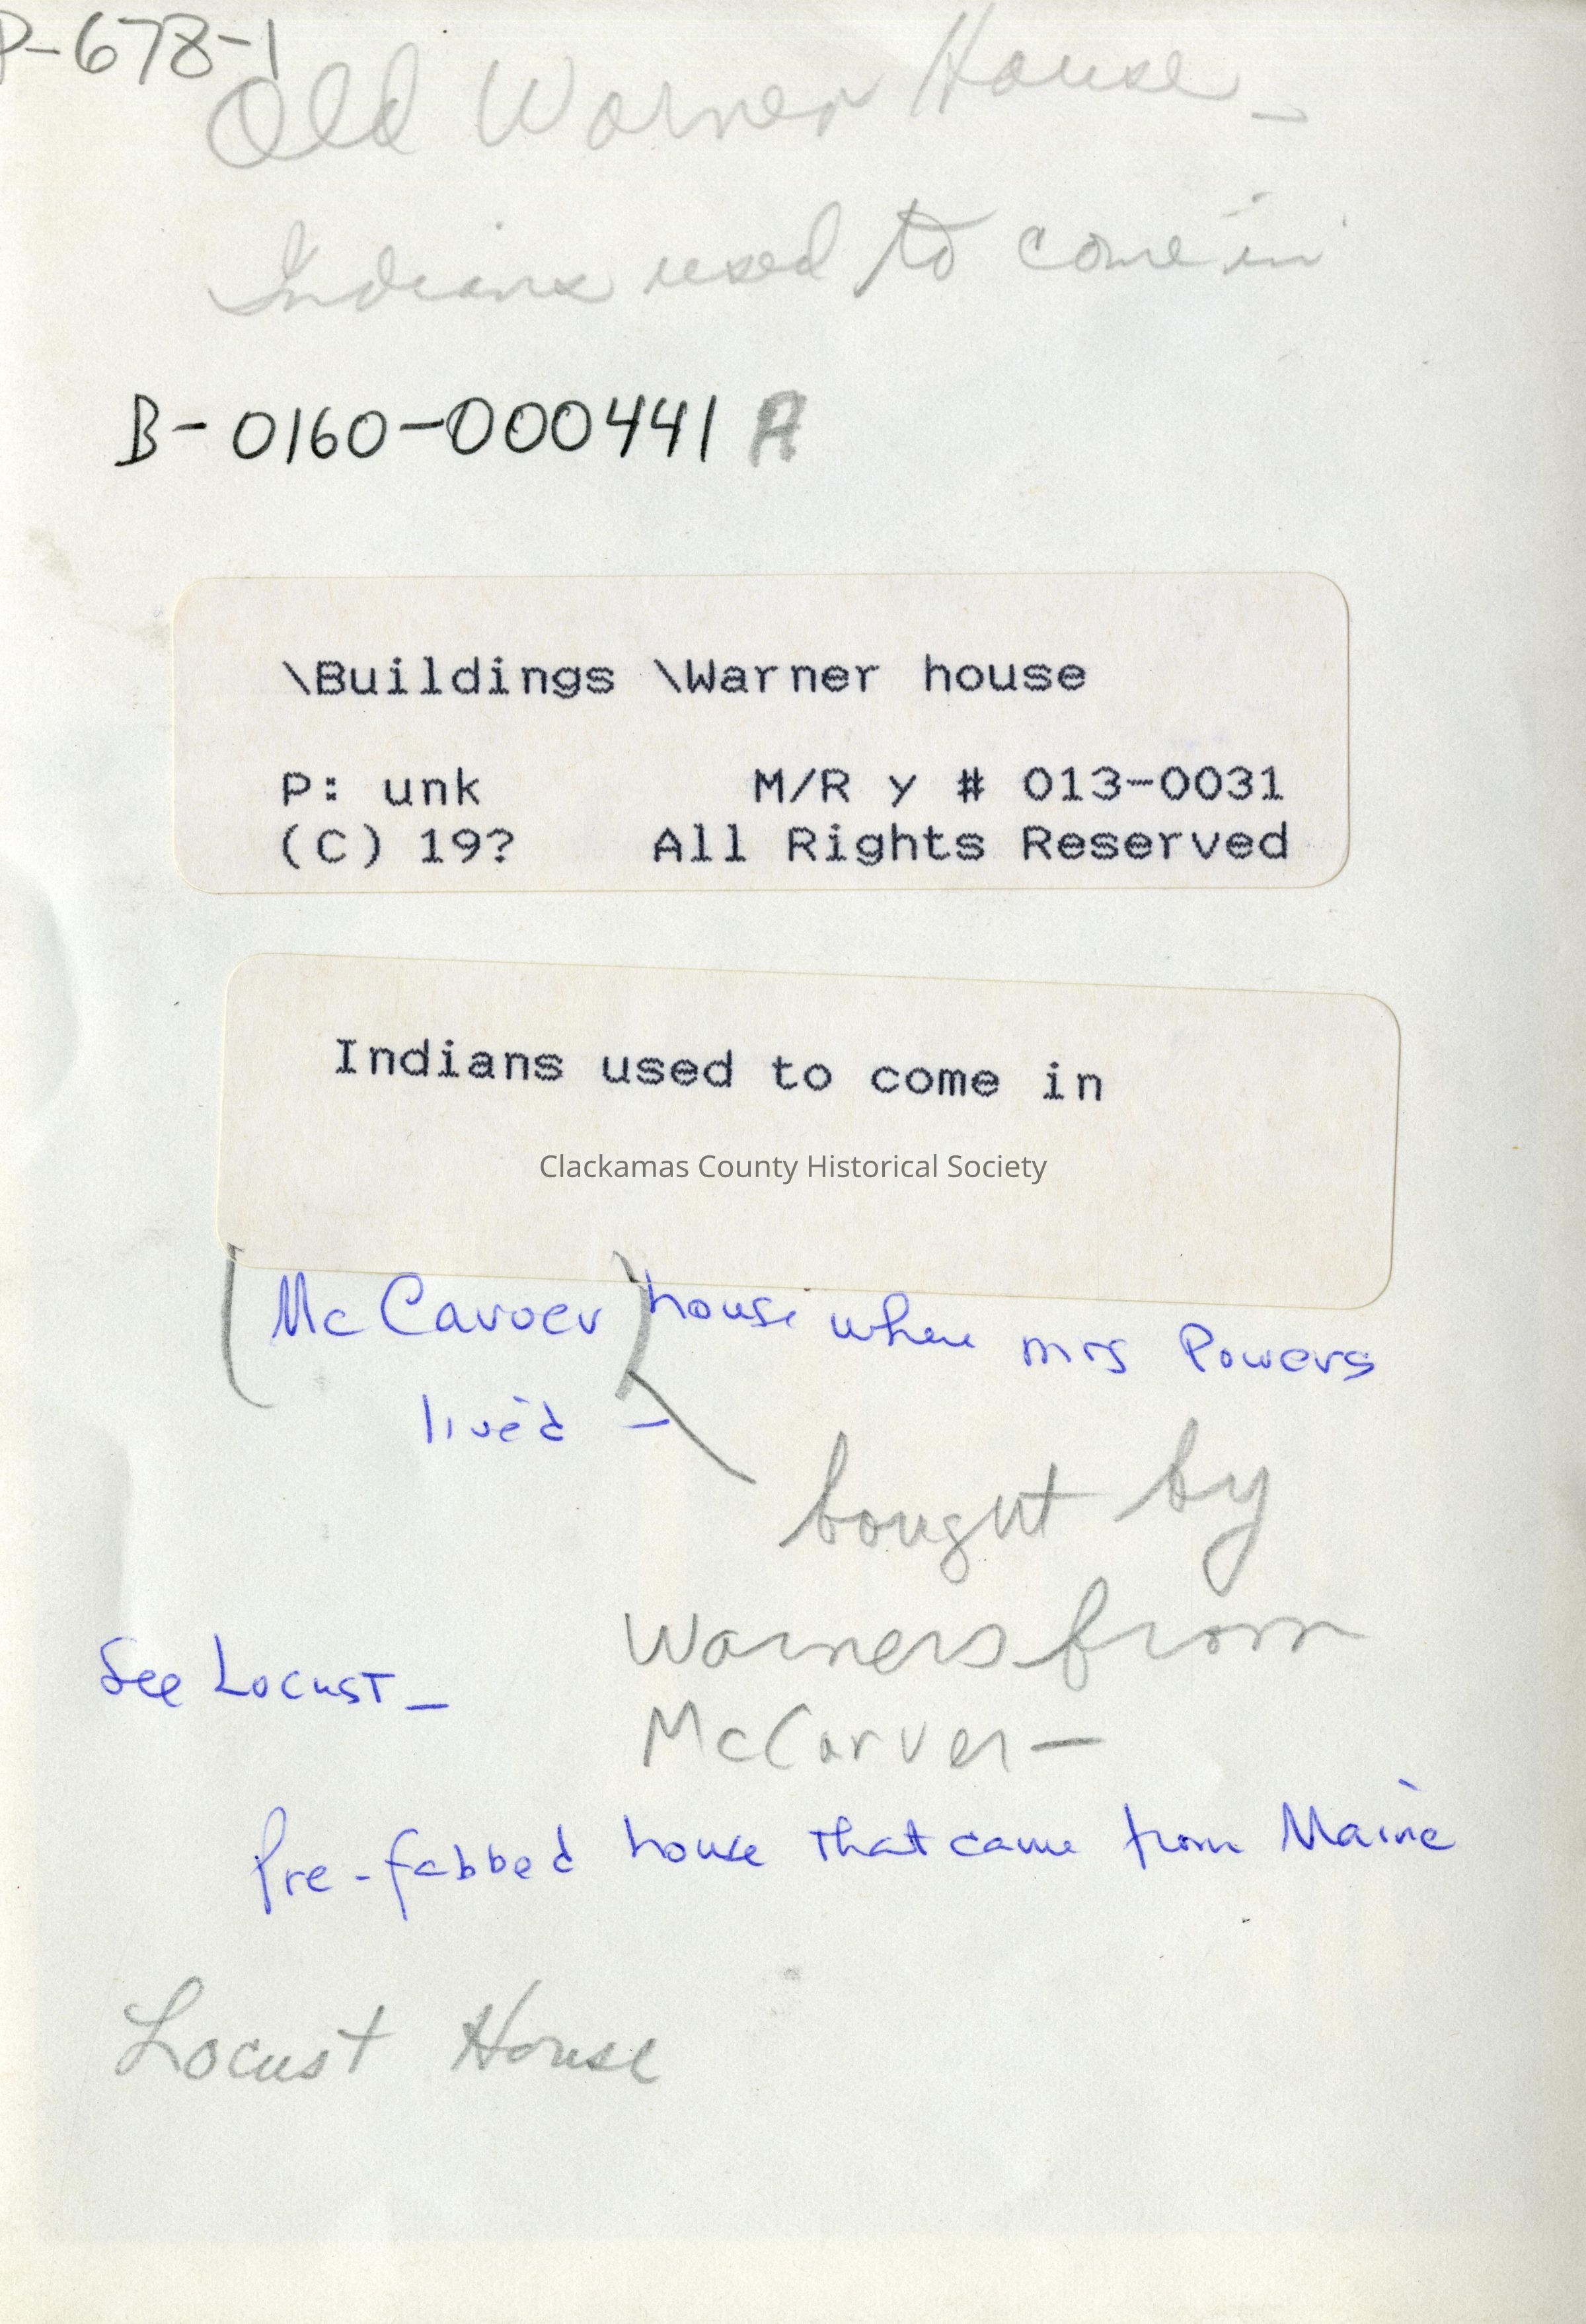 P-678-1
Old Warner House -
Indians used to come in
B-0160-000441 A
\Buildings \Warner house
P: unk M/R y # 013-0031
(C) 19? All Rights Reserved
Indians used to come in
Clackamas County Historical Society
(McCarver) house where mrs Powers
lived -
bought by
Warners from
McCarver -
See Locust -
Pre-fabbed house that came from Maine
Locust House